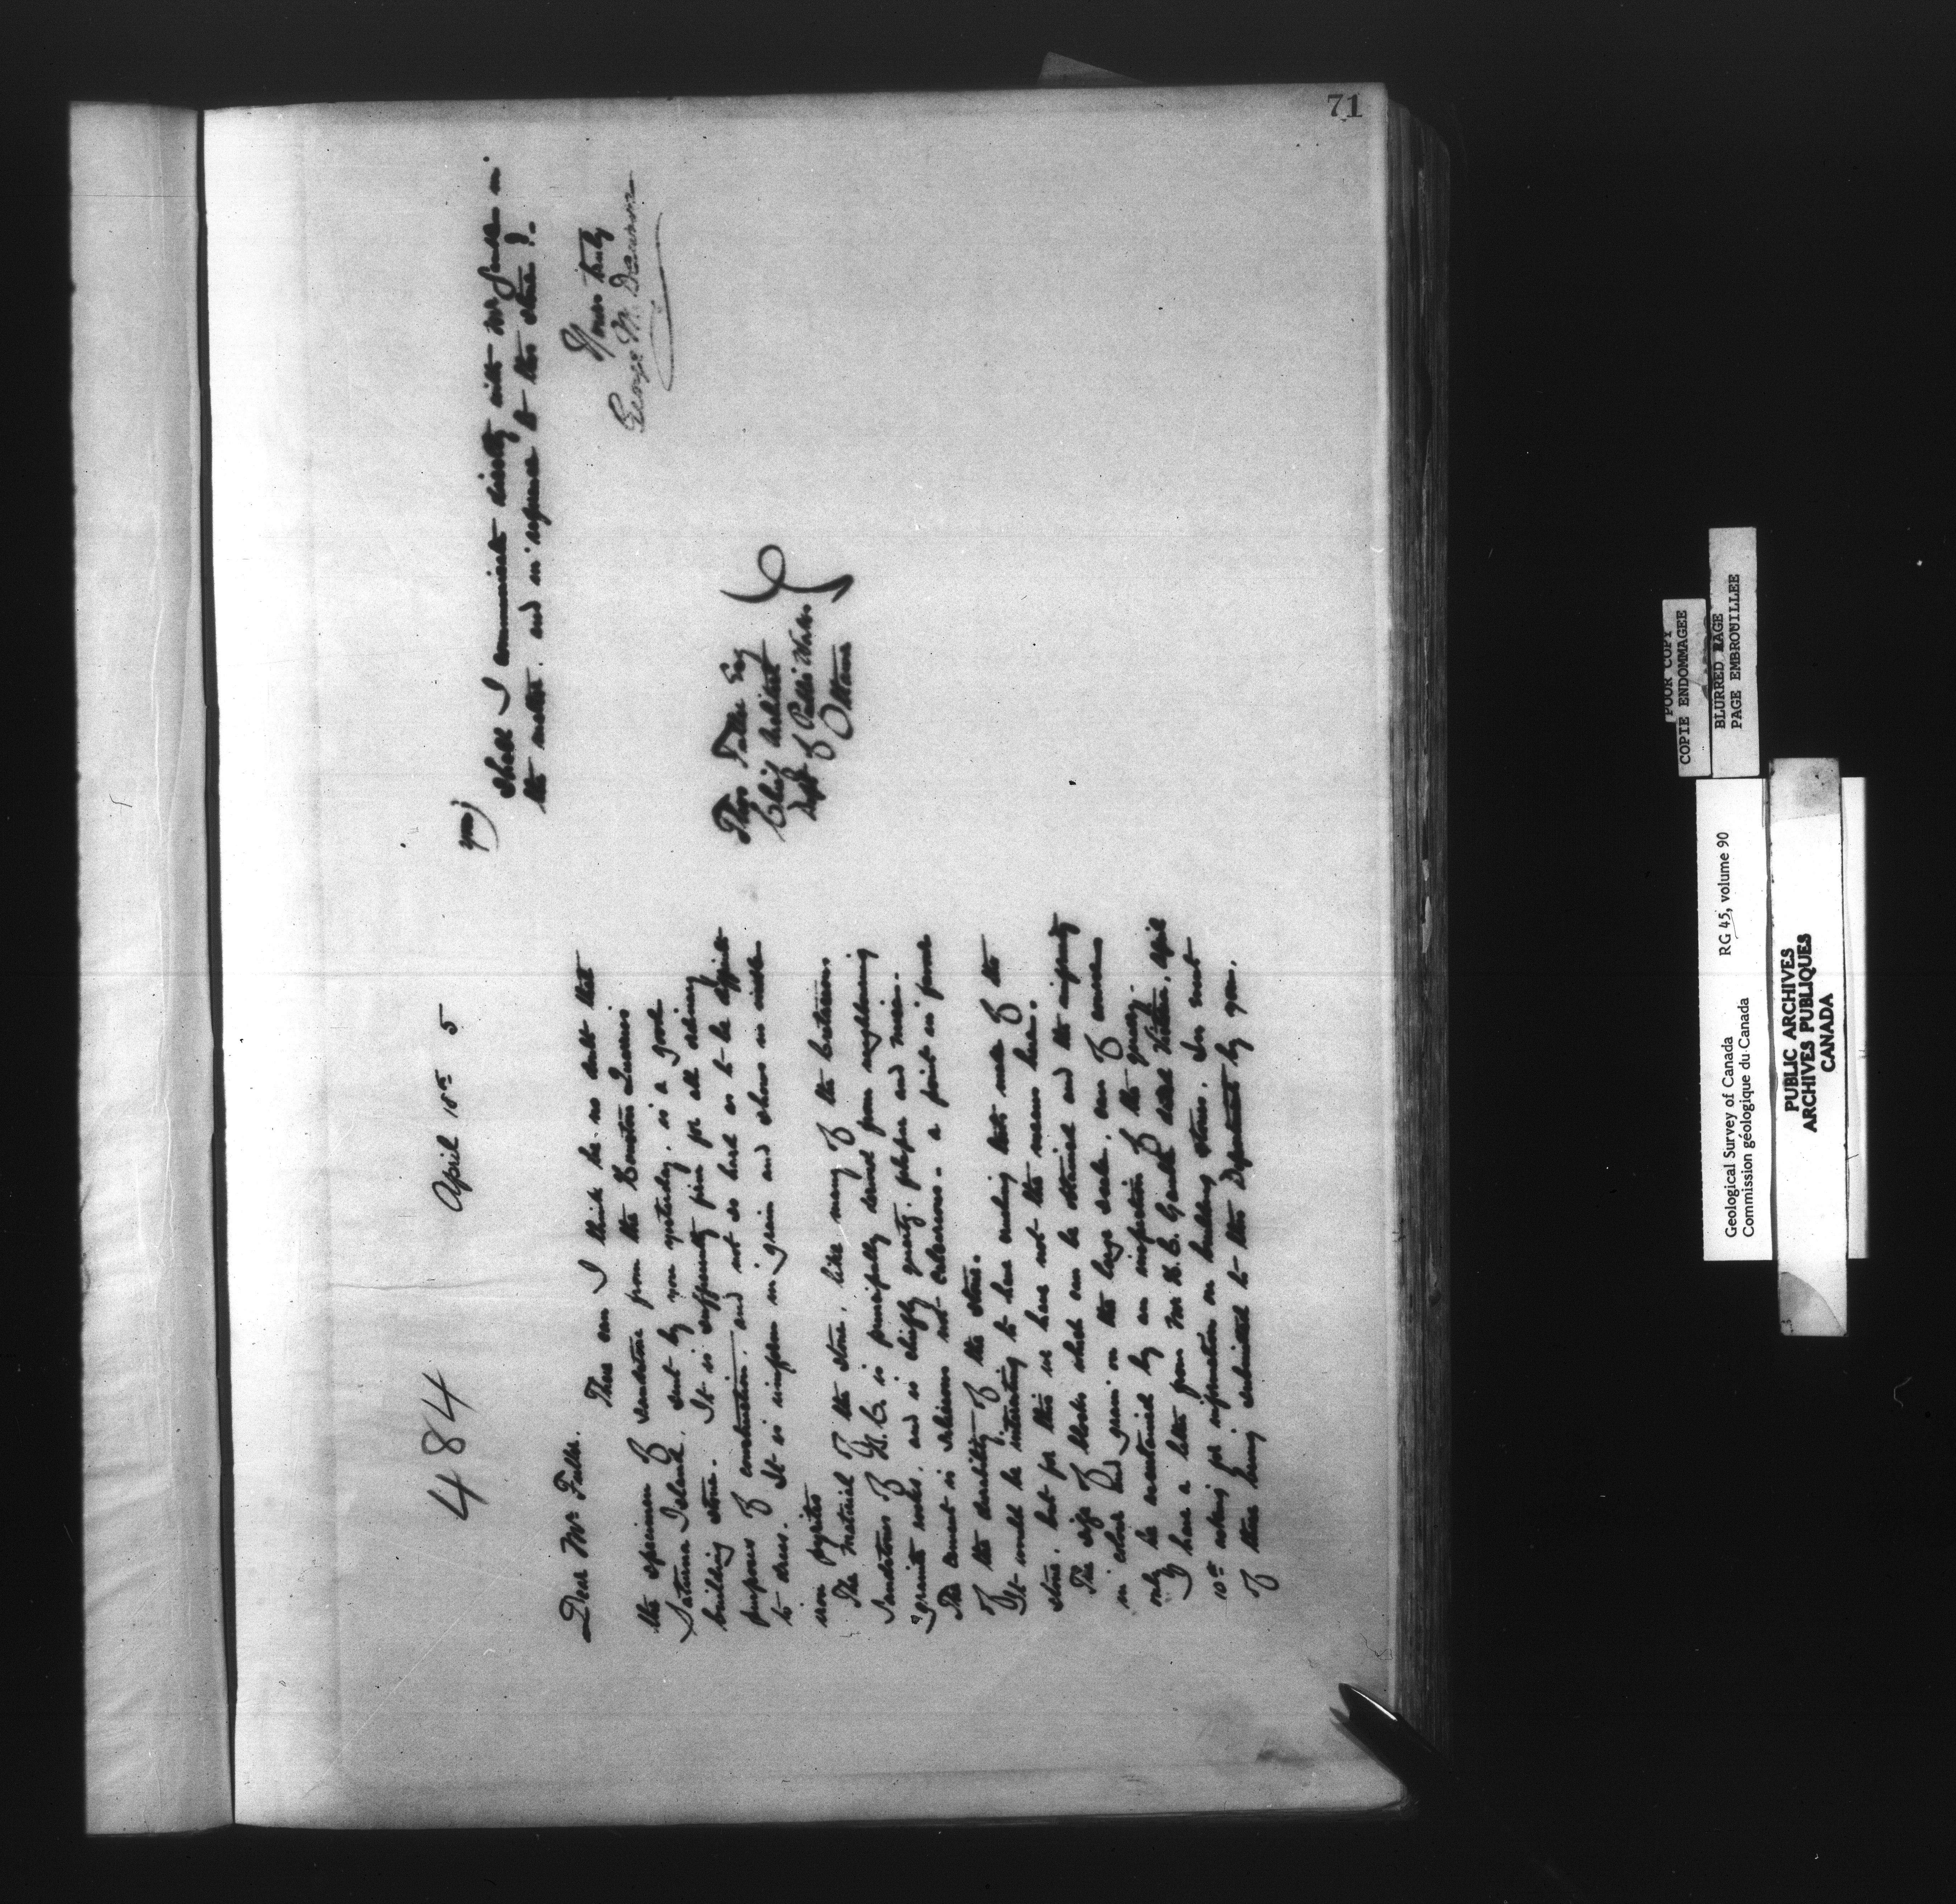 71
484
April 18th 5
Dear Mr Fuller.
There can I think be no doubt that
the specimen of sandstone from the Quarries
Saturna Island, sent by you yesterday, is a good
building stone. It is sufficiently fine for all ordinary
purposes of construction, and not so hard as to be difficult
to dress. It is uniform in grain and shows no visible
iron pyrites
The material of the stone, like many of the
sandstones of B.C. is principally derived from neighboring
granite rocks, and is chiefly quartz, felspar and mica.
The cement is silicious not calcareous - a point in favor
of the durability of the stone.
It would be interesting to have crushing tests made of the
stone, but for this we have not the means here.
The size of blocks which can be obtained and the uniformity
in colour and grain on the large scale, can of course
only be ascertained by an inspection of the quarry.
I have a letter from Mr H.C. dated Victoria, April
10th asking for information on building stones.
of these being submitted to the Department by you.
Shall I communicate directly with Mr in
the matter, and in reference to this stone?
Yours truly
George M. Dawson
Thos Fuller Esq
Chief Architect
Dept of Public Works
Ottawa
POOR COPY
COPIE ENDOMMAGEE
BLURRED PAGE
PAGE EMBROUILLEE
Geological Survey of Canada RG 45, volume 90
Commission géologique du Canada
PUBLIC ARCHIVES
ARCHIVES PUBLIQUES
CANADA